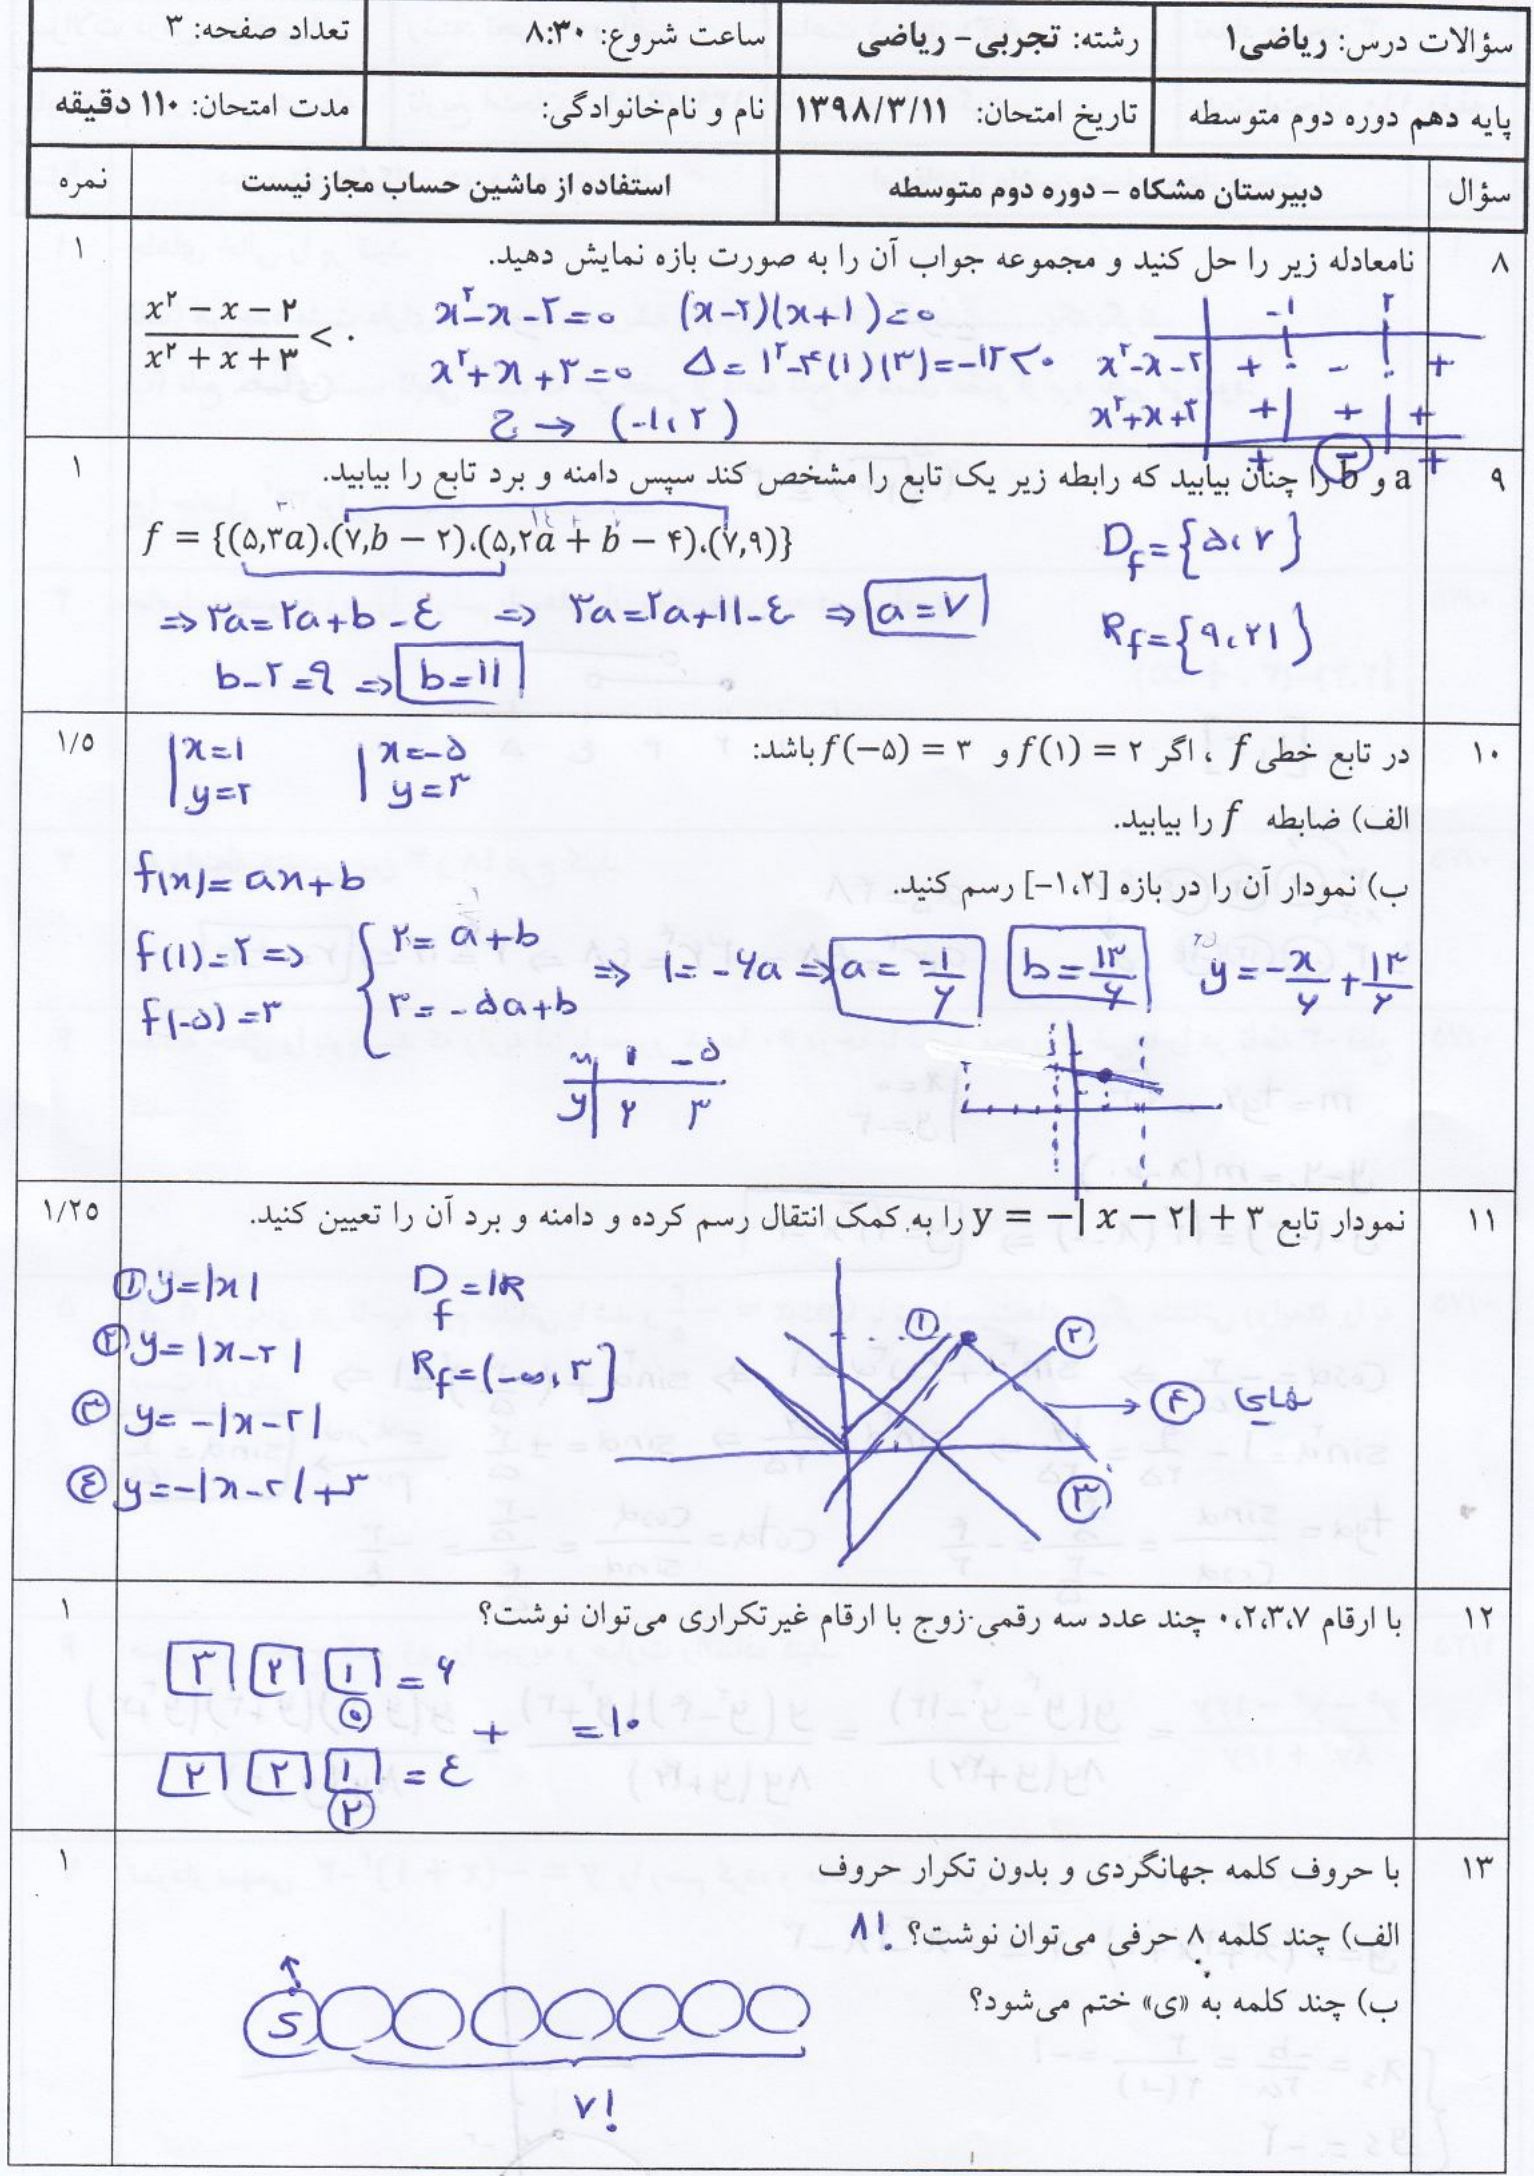 سؤالات درس: ریاضی۱ رشته: تجربی- ریاضی ساعت شروع: ۸:۳۰ تعداد صفحه: ۳
پایه دهم دوره دوم متوسطه تاریخ امتحان: ۱۳۹۸/۳/۱۱ نام و نام‌خانوادگی: مدت امتحان: ۱۱۰ دقیقه
سؤال دبیرستان مشکاه – دوره دوم متوسطه استفاده از ماشین حساب مجاز نیست نمره
۸ نامعادله زیر را حل کنید و مجموعه جواب آن را به صورت بازه نمایش دهید. ۱
(x² − x − ۲)/(x² + x + ۳) < ۰
x²-x-۲=۰ (x-۲)(x+۱)=۰
x²+x+۳=۰ Δ=۱²-۴(۱)(۳)=-۱۲<۰
ج → (-۱،۲)
-۱ ۲
x²-x-۲ + - +
x²+x+۳ + + +
+ - +
۹ a و b را چنان بیابید که رابطه زیر یک تابع را مشخص کند سپس دامنه و برد تابع را بیابید. ۱
f = {(۵,۳a).(۷,b − ۲).(۵,۲a + b − ۴).(۷,۹)}
D_f={۵،۷}
⇒ ۳a=۲a+b-٤ ⇒ ۳a=۲a+۱۱-٤ ⇒ a=۷
R_f={۹،۲۱}
b-۲=۹ ⇒ b=۱۱
۱۰ در تابع خطی f ، اگر f(۱) = ۲ و f(−۵) = ۳ باشد: ۱/۵
x=۱ x=-۵
y=۲ y=۳
الف) ضابطه f را بیابید.
ب) نمودار آن را در بازه [−۱،۲] رسم کنید.
f(x)=ax+b
f(۱)=۲ ⇒ ۲=a+b
f(-۵)=۳ ۳=-۵a+b
⇒ ۱=-۶a ⇒ a=-۱/۶ b=۱۳/۶ y=-x/۶+۱۳/۶
x ۱ -۵
y ۲ ۳
۱۱ نمودار تابع y = −| x − ۲| + ۳ را به کمک انتقال رسم کرده و دامنه و برد آن را تعیین کنید. ۱/۲۵
① y=|x| D_f=IR
② y=|x-۲| R_f=(-∞,۳]
③ y=-|x-۲|
④ y=-|x-۲|+۳
① ② ③ ④ نهایی
۱۲ با ارقام ۰،۲،۳،۷ چند عدد سه رقمی زوج با ارقام غیرتکراری می‌توان نوشت؟ ۱
۳ ۲ ۱ = ۶
۰ + =۱۰
۲ ۲ ۱ = ٤
۲
۱۳ با حروف کلمه جهانگردی و بدون تکرار حروف ۱
الف) چند کلمه ۸ حرفی می‌توان نوشت؟ ۸!
ب) چند کلمه به «ی» ختم می‌شود؟
ی
۷!